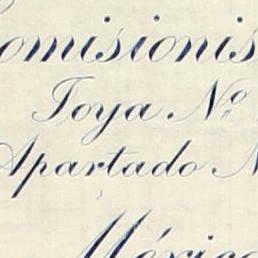 omisionis
Joya Nº
Apartado N
México